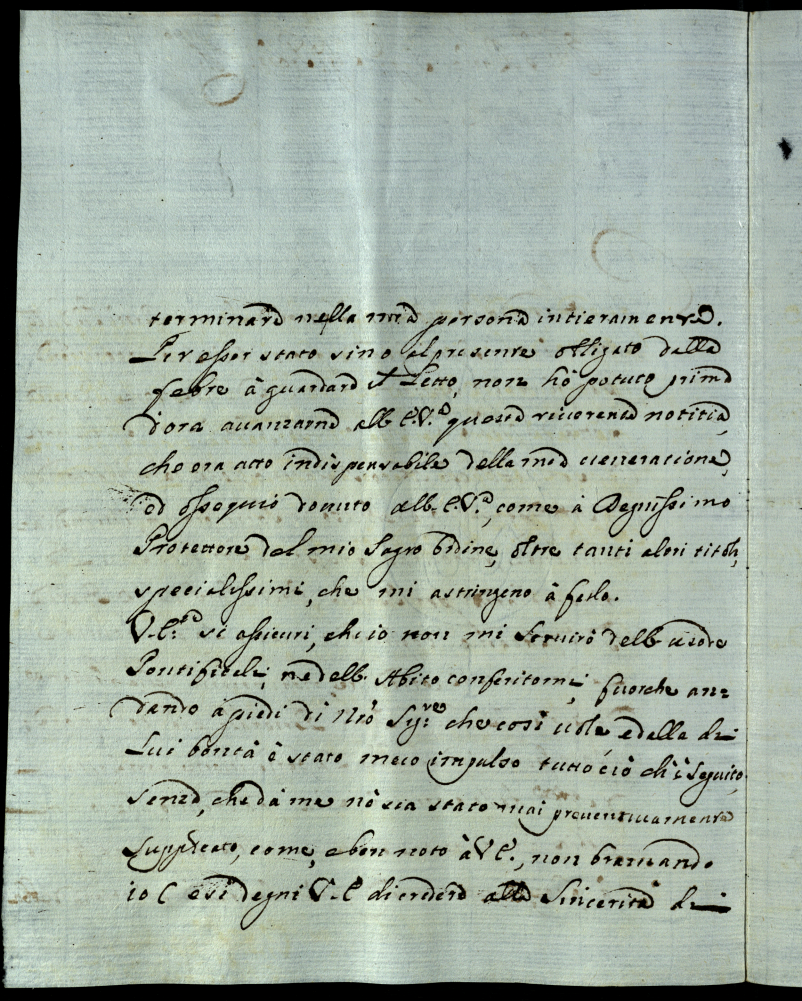 terminare nella mia persona intieramente.
Per esser stato sino al presente obligato dalla
febre à guardare il Letto, non hò potuto prima
d'ora avanzarne all' E.V.ª questa riverente notitia,
che ora atto indispensabile della mia veneratione,
ed ossequio dovuto all' E.V.ª, come à Degnissimo
Protettore del mio Sagro Ordine, oltre tanti altri titoli
specialissimi, che mi astringono à farlo.
V.E.ª si assicuri, che io non mi servirò dell'
Pontificale, ne dell' Abito conferitomi, fuorche an=
dando à piedi di Nrõ Sig.re che così vole, e dalla di
Lui bontà è stato mero impulso tutto ciò ch'è seguito,
senza, che da me nõ sia stato mai preventivamente
supplicato, come, è ben noto à V.E., non bramando
io ( e si degni V.E. di credere alla sincerità di